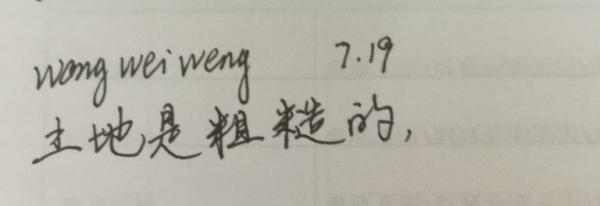 wang wei weng 7.19
土地是粗糙的,